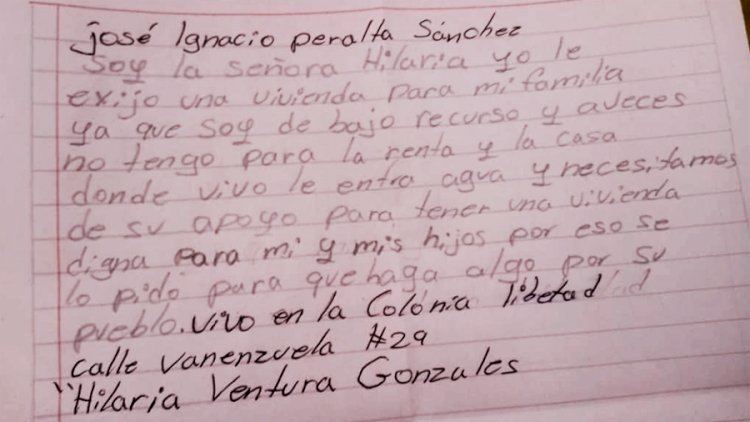 josé Ignacio peralta Sánchez
Soy la señora Hilaria yo le
exijo una vivienda para mi familia
ya que soy de bajo recurso y aveces
no tengo para la renta y la casa
donde vivo le entra agua y necesitamos
de su apoyo para tener una vivienda
digna para mi y mis hijos por eso se
lo pido para que haga algo por su
pueblo. vivo en la Colónia libetad
calle vanenzuela #29
"Hilaria Ventura Gonzales